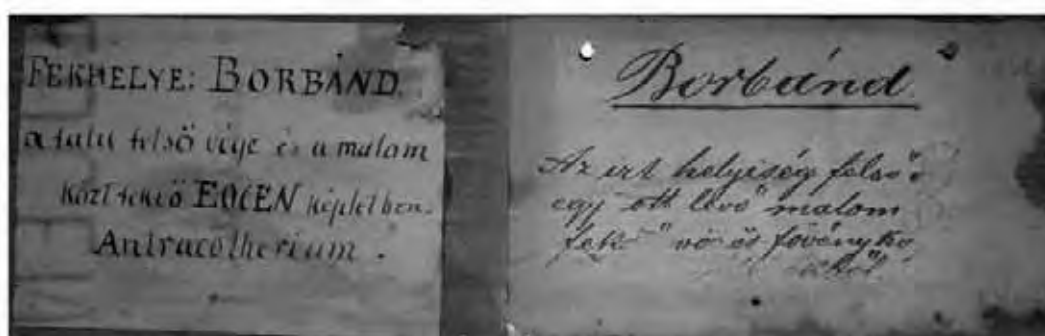 FEKHELYE: BORBÁND.
a falu felső vége és a malom
közt fekvő EOCEN képletben.
Antracotherium.
Borbánd
Az irt helyiség felső
egy ott lévő malom
fek vörös fövénykő